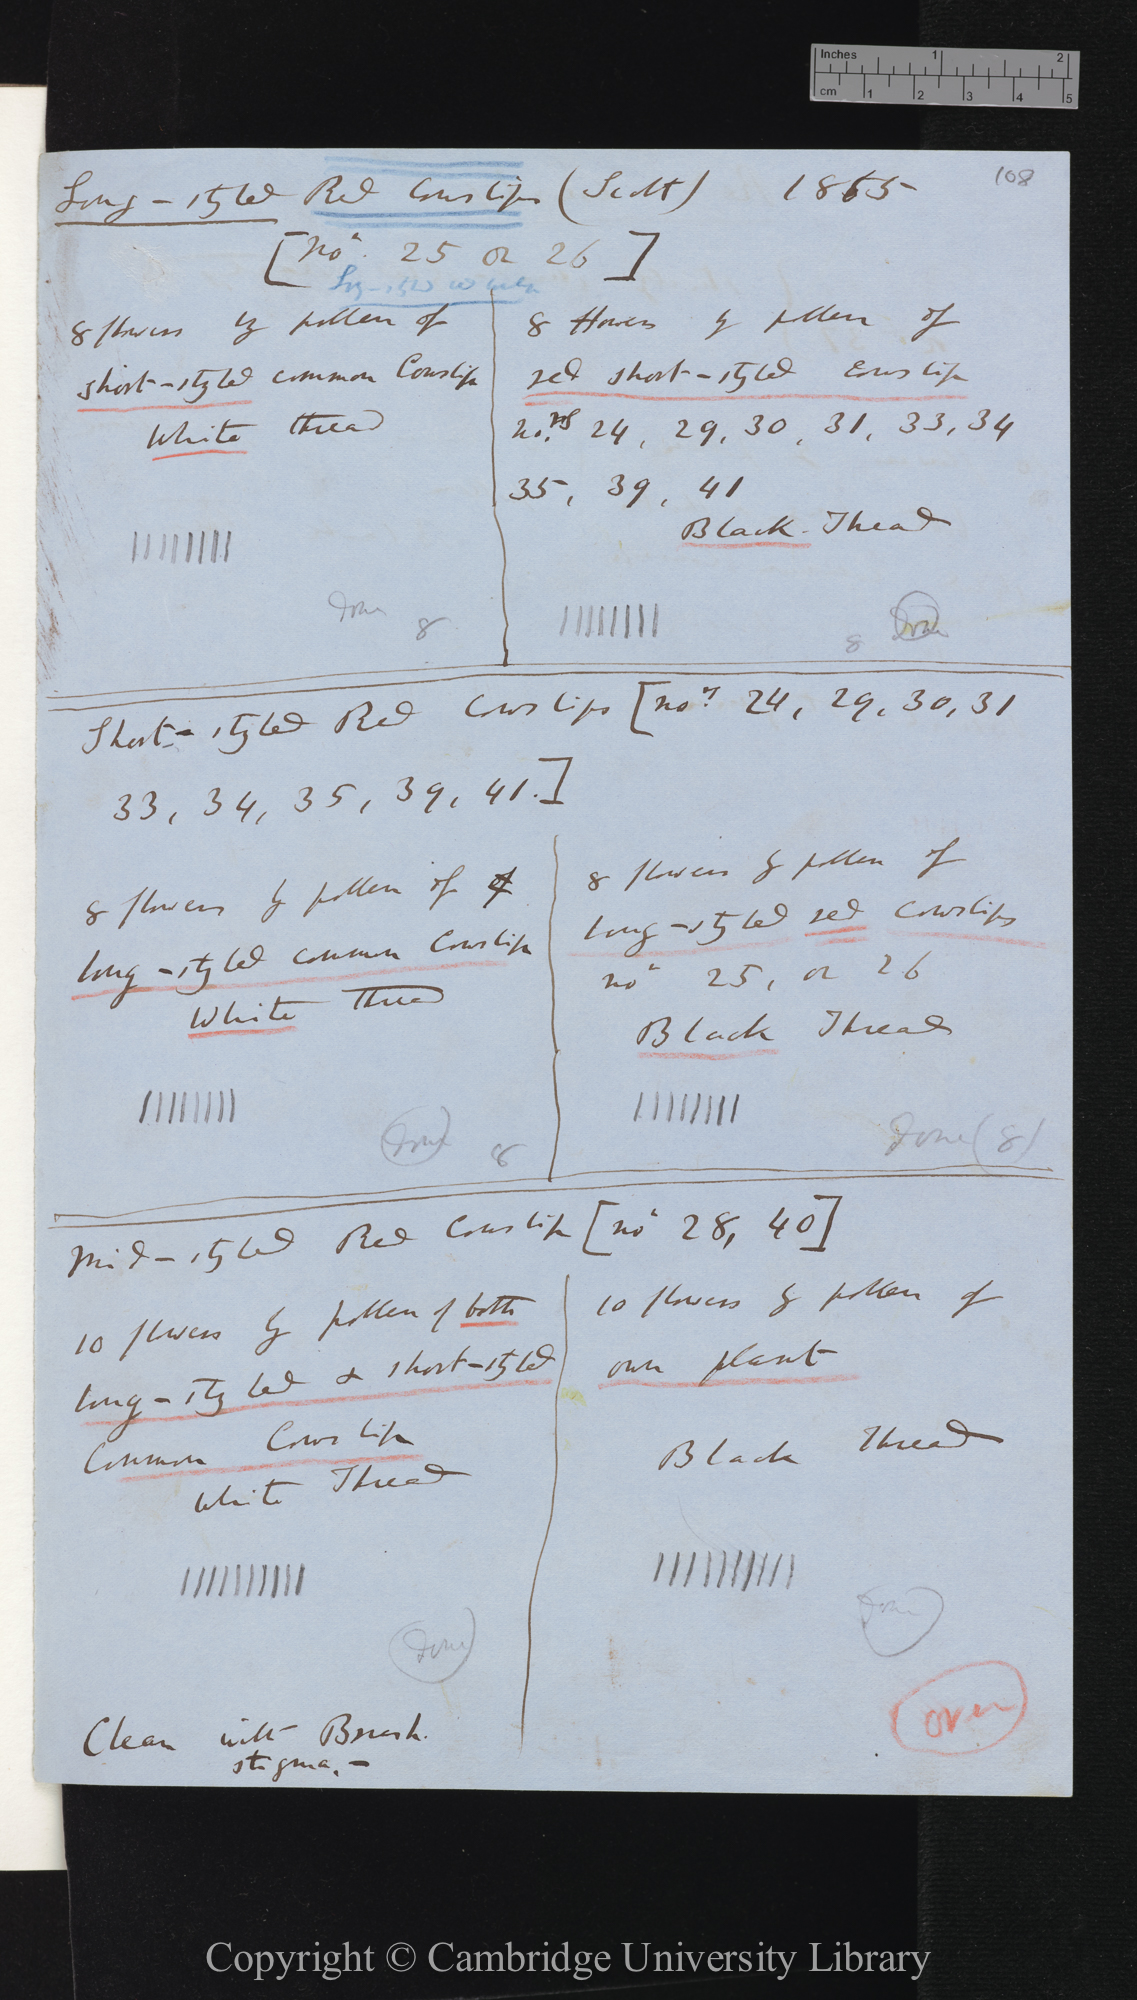 Inches 1 2
cm 1 2 3 4 5
108
Long-styled Red Cowslips (Scott) 1865
[No. 25 or 26]
Long-styled
8 flowers by pollen of
short-styled common Cowslip
White thread
done 8
8 flowers by pollen of
red short-styled Cowslip
no.rs 24, 29, 30, 31, 33, 34
35, 39, 41
Black Thread
8 done
Short-styled Red Cowslips [nors 24, 29, 30, 31
33, 34, 35, 39, 41.]
8 flowers by pollen of
long-styled common Cowslip
White Thread
done 8
8 flowers by pollen of
long-styled red Cowslips
no 25, or 26
Black Thread
Done (8)
Mid-styled Red Cowslip [no 28, 40]
10 flowers by pollen of both
long-styled & short-styled
Common Cowslip
White Thread
done
10 flowers by pollen of
own plant
Black Thread
done
Clean with Brush.
stigma. —
over
Copyright © Cambridge University Library